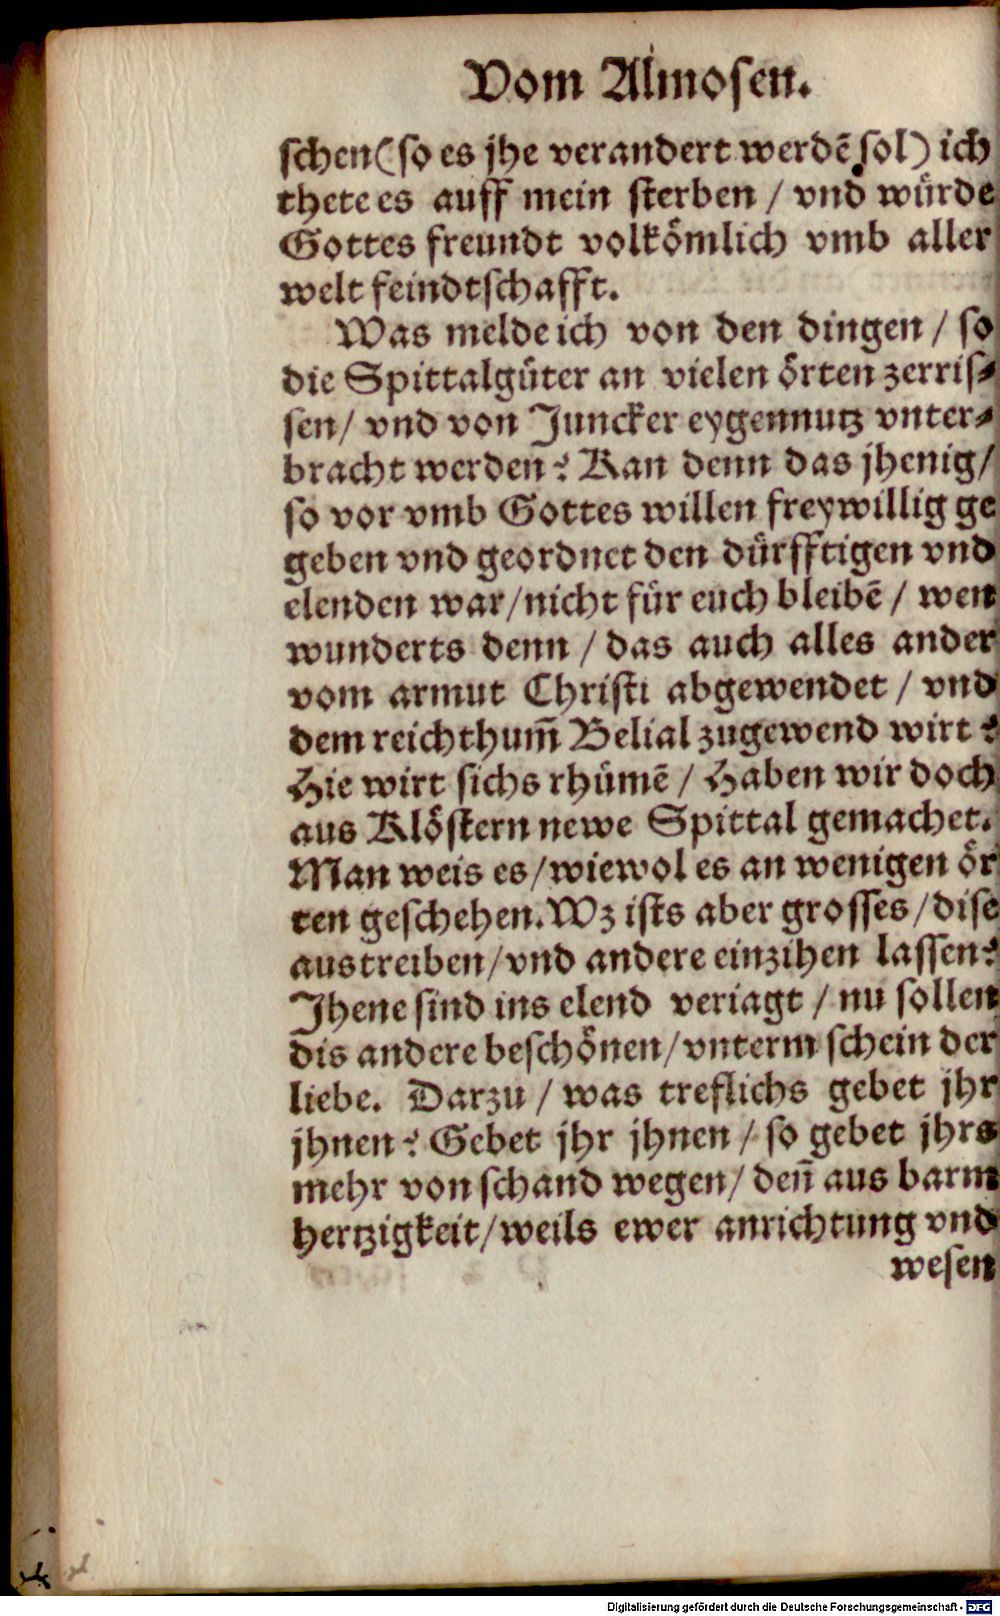 Vom Almosen.
schen (so es jhe verandert werdẽ sol) ich
thete es auff mein sterben / vnd würde
Gottes freundt volkömlich vmb aller
welt feindtschafft.
Was melde ich von den dingen / so
die Spittalgüter an vielen örten zerris⸗
sen / vnd von Juncker eygennutz vnter⸗
bracht werden? Kan denn das jhenig /
so vor vmb Gottes willen freywillig ge
geben vnd geordnet den dürfftigen vnd
elenden war / nicht für euch bleibẽ / wen
wunderts denn / das auch alles ander
vom armut Christi abgewendet / vnd
dem reichthum̃ Belial zugewend wirt?
Hie wirt sichs rhümẽ / Haben wir doch
aus Klöstern newe Spittal gemachet.
Man weis es / wiewol es an wenigen ör
ten geschehen. Wz ists aber grosses / dise
austreiben / vnd andere einzihen lassen?
Jhene sind ins elend veriagt / nu sollen
dis andere beschönen / vnterm schein der
liebe. Darzu / was treflichs gebet jhr
jhnen? Gebet jhr jhnen / so gebet jhrs
mehr von schand wegen / deñ aus barm
hertzigkeit / weils ewer anrichtung vnd
wesen
Digitalisierung gefördert durch die Deutsche Forschungsgemeinschaft - DFG